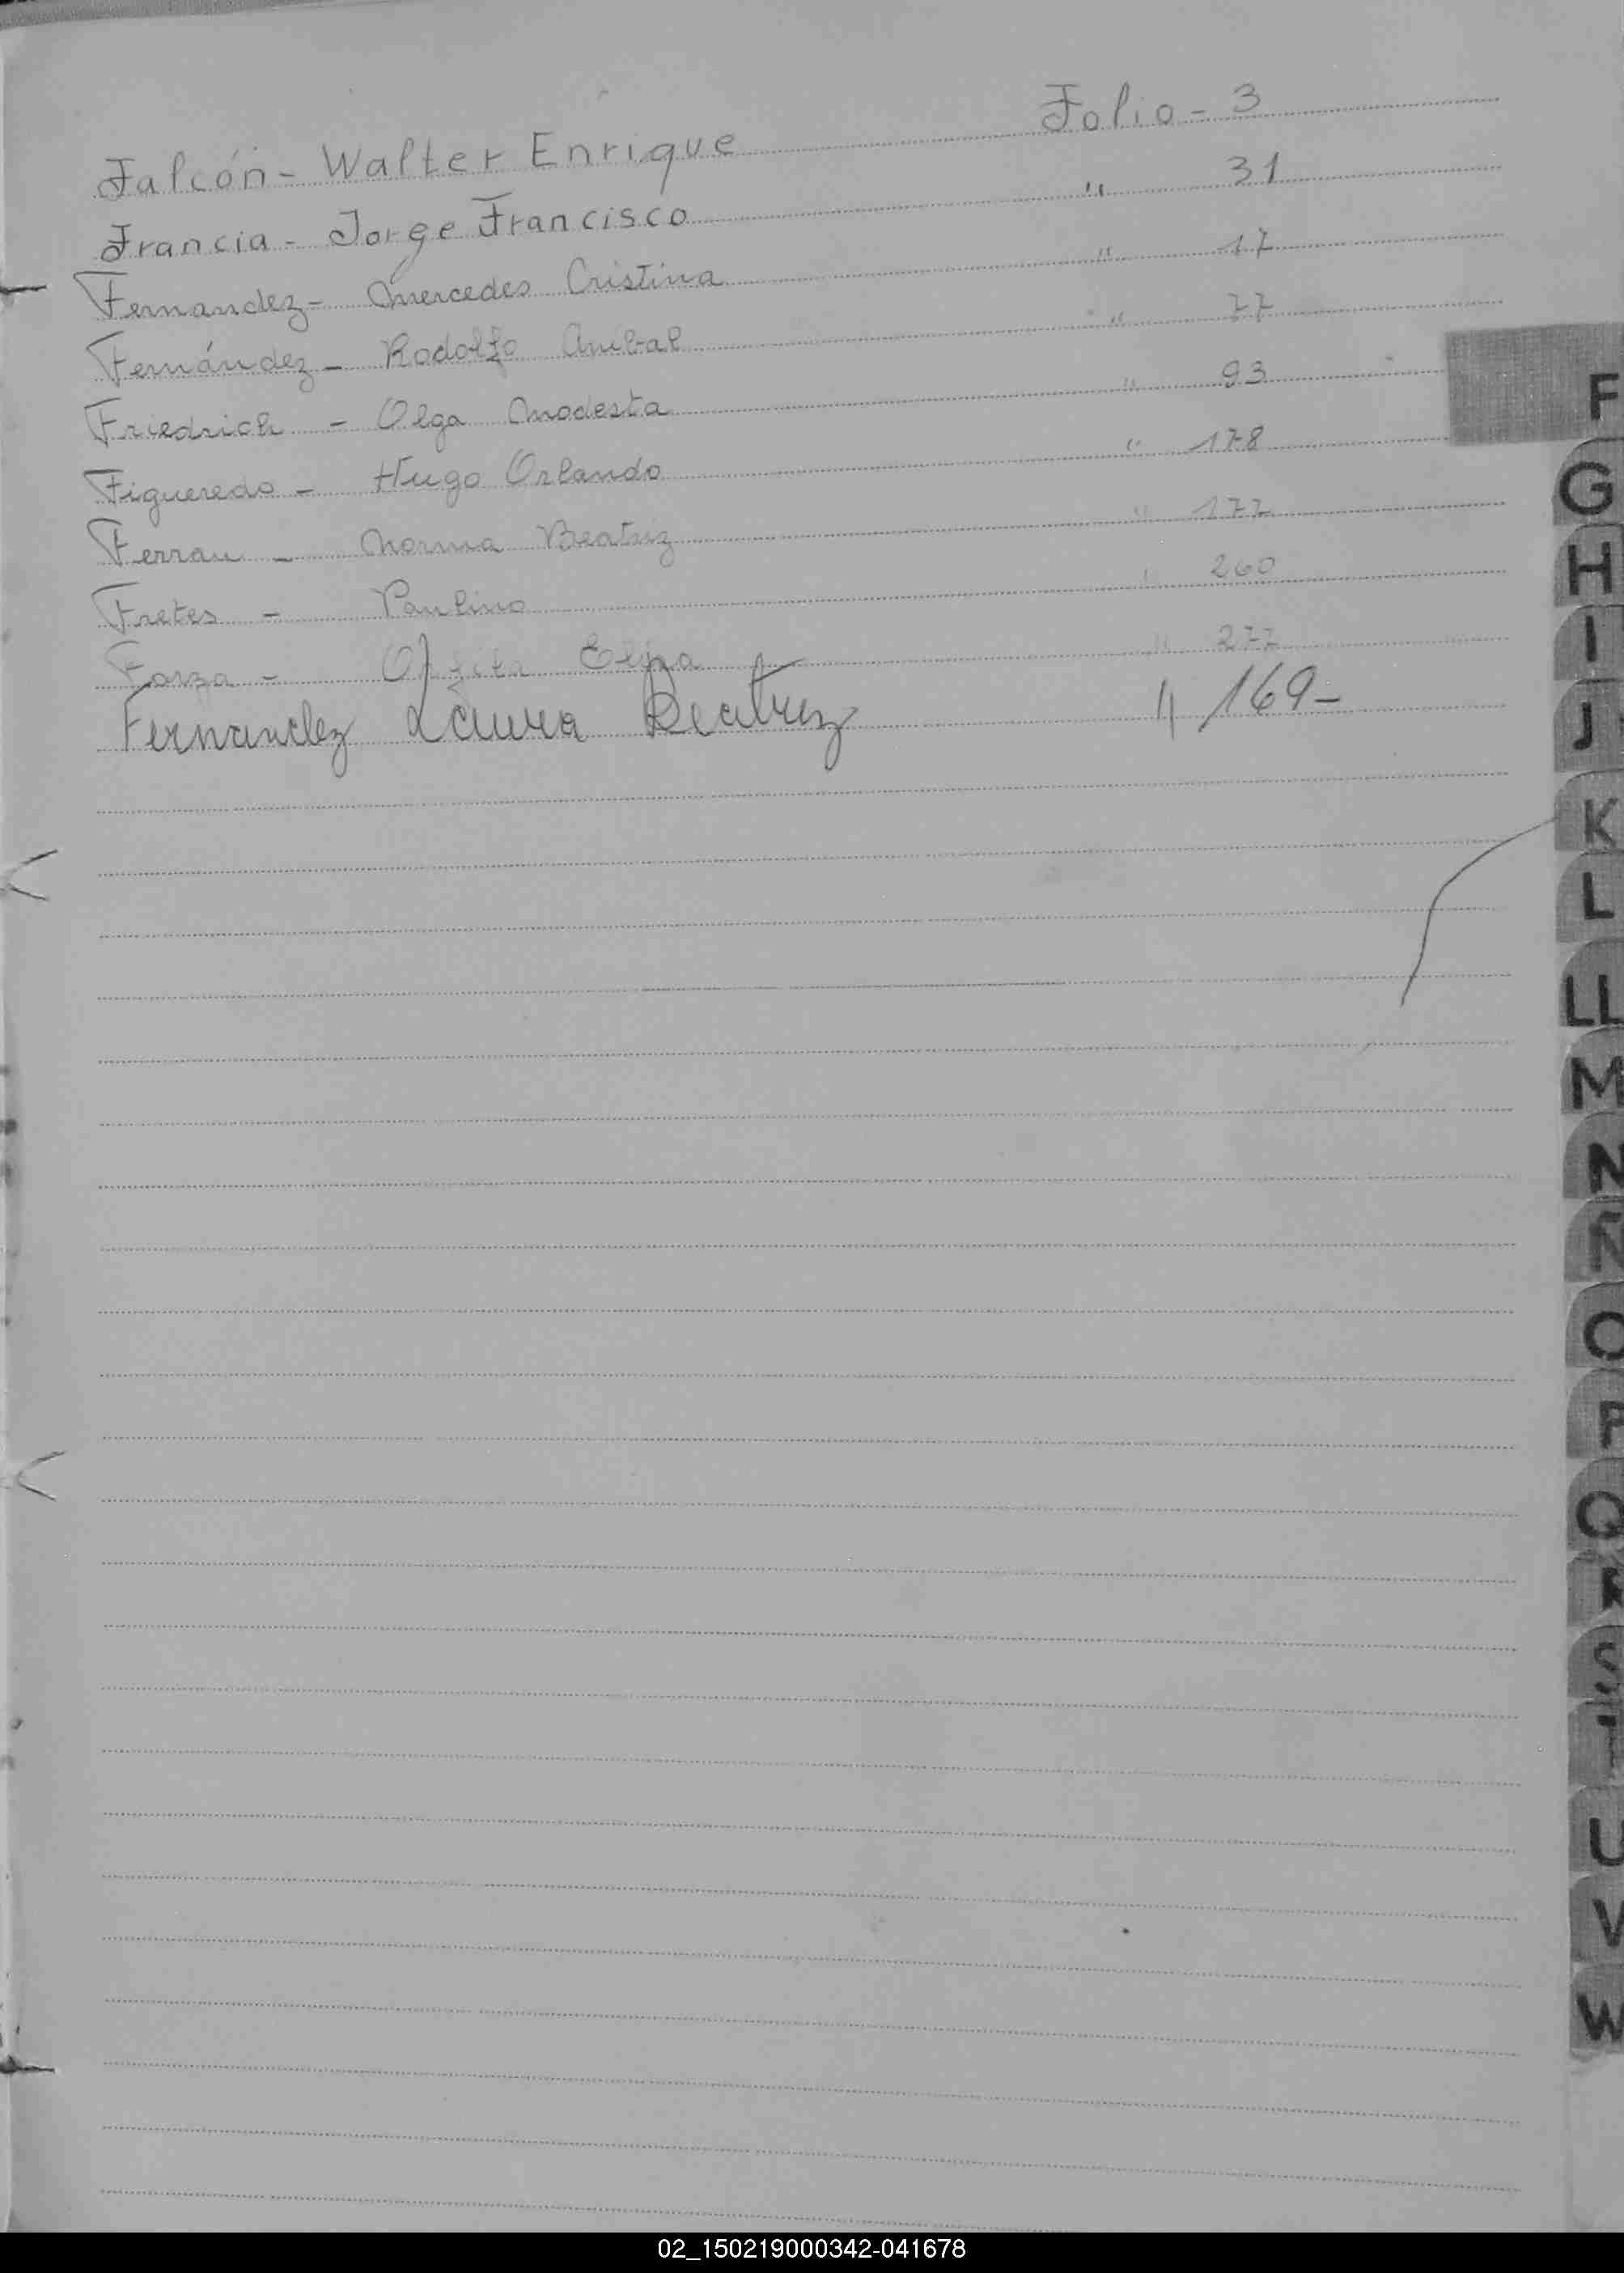 Falcón - Walter Enrique Folio - 3
Francia - Jorge Francisco " 31
Fernandez - Mercedes Cristina " 17
Fernández - Rodolfo Anibal " 77
Friedrich - Olga Modesta " 93
Figueredo - Hugo Orlando " 178
Ferrau - Norma Beatriz " 177
Fretes - Paulino " 260
Forza - " 277
Fernandez Laura Beatriz " 169-
F
G
H
I
J
K
L
LL
M
N
Ñ
O
P
Q
R
S
T
U
V
W
02_150219000342-041678